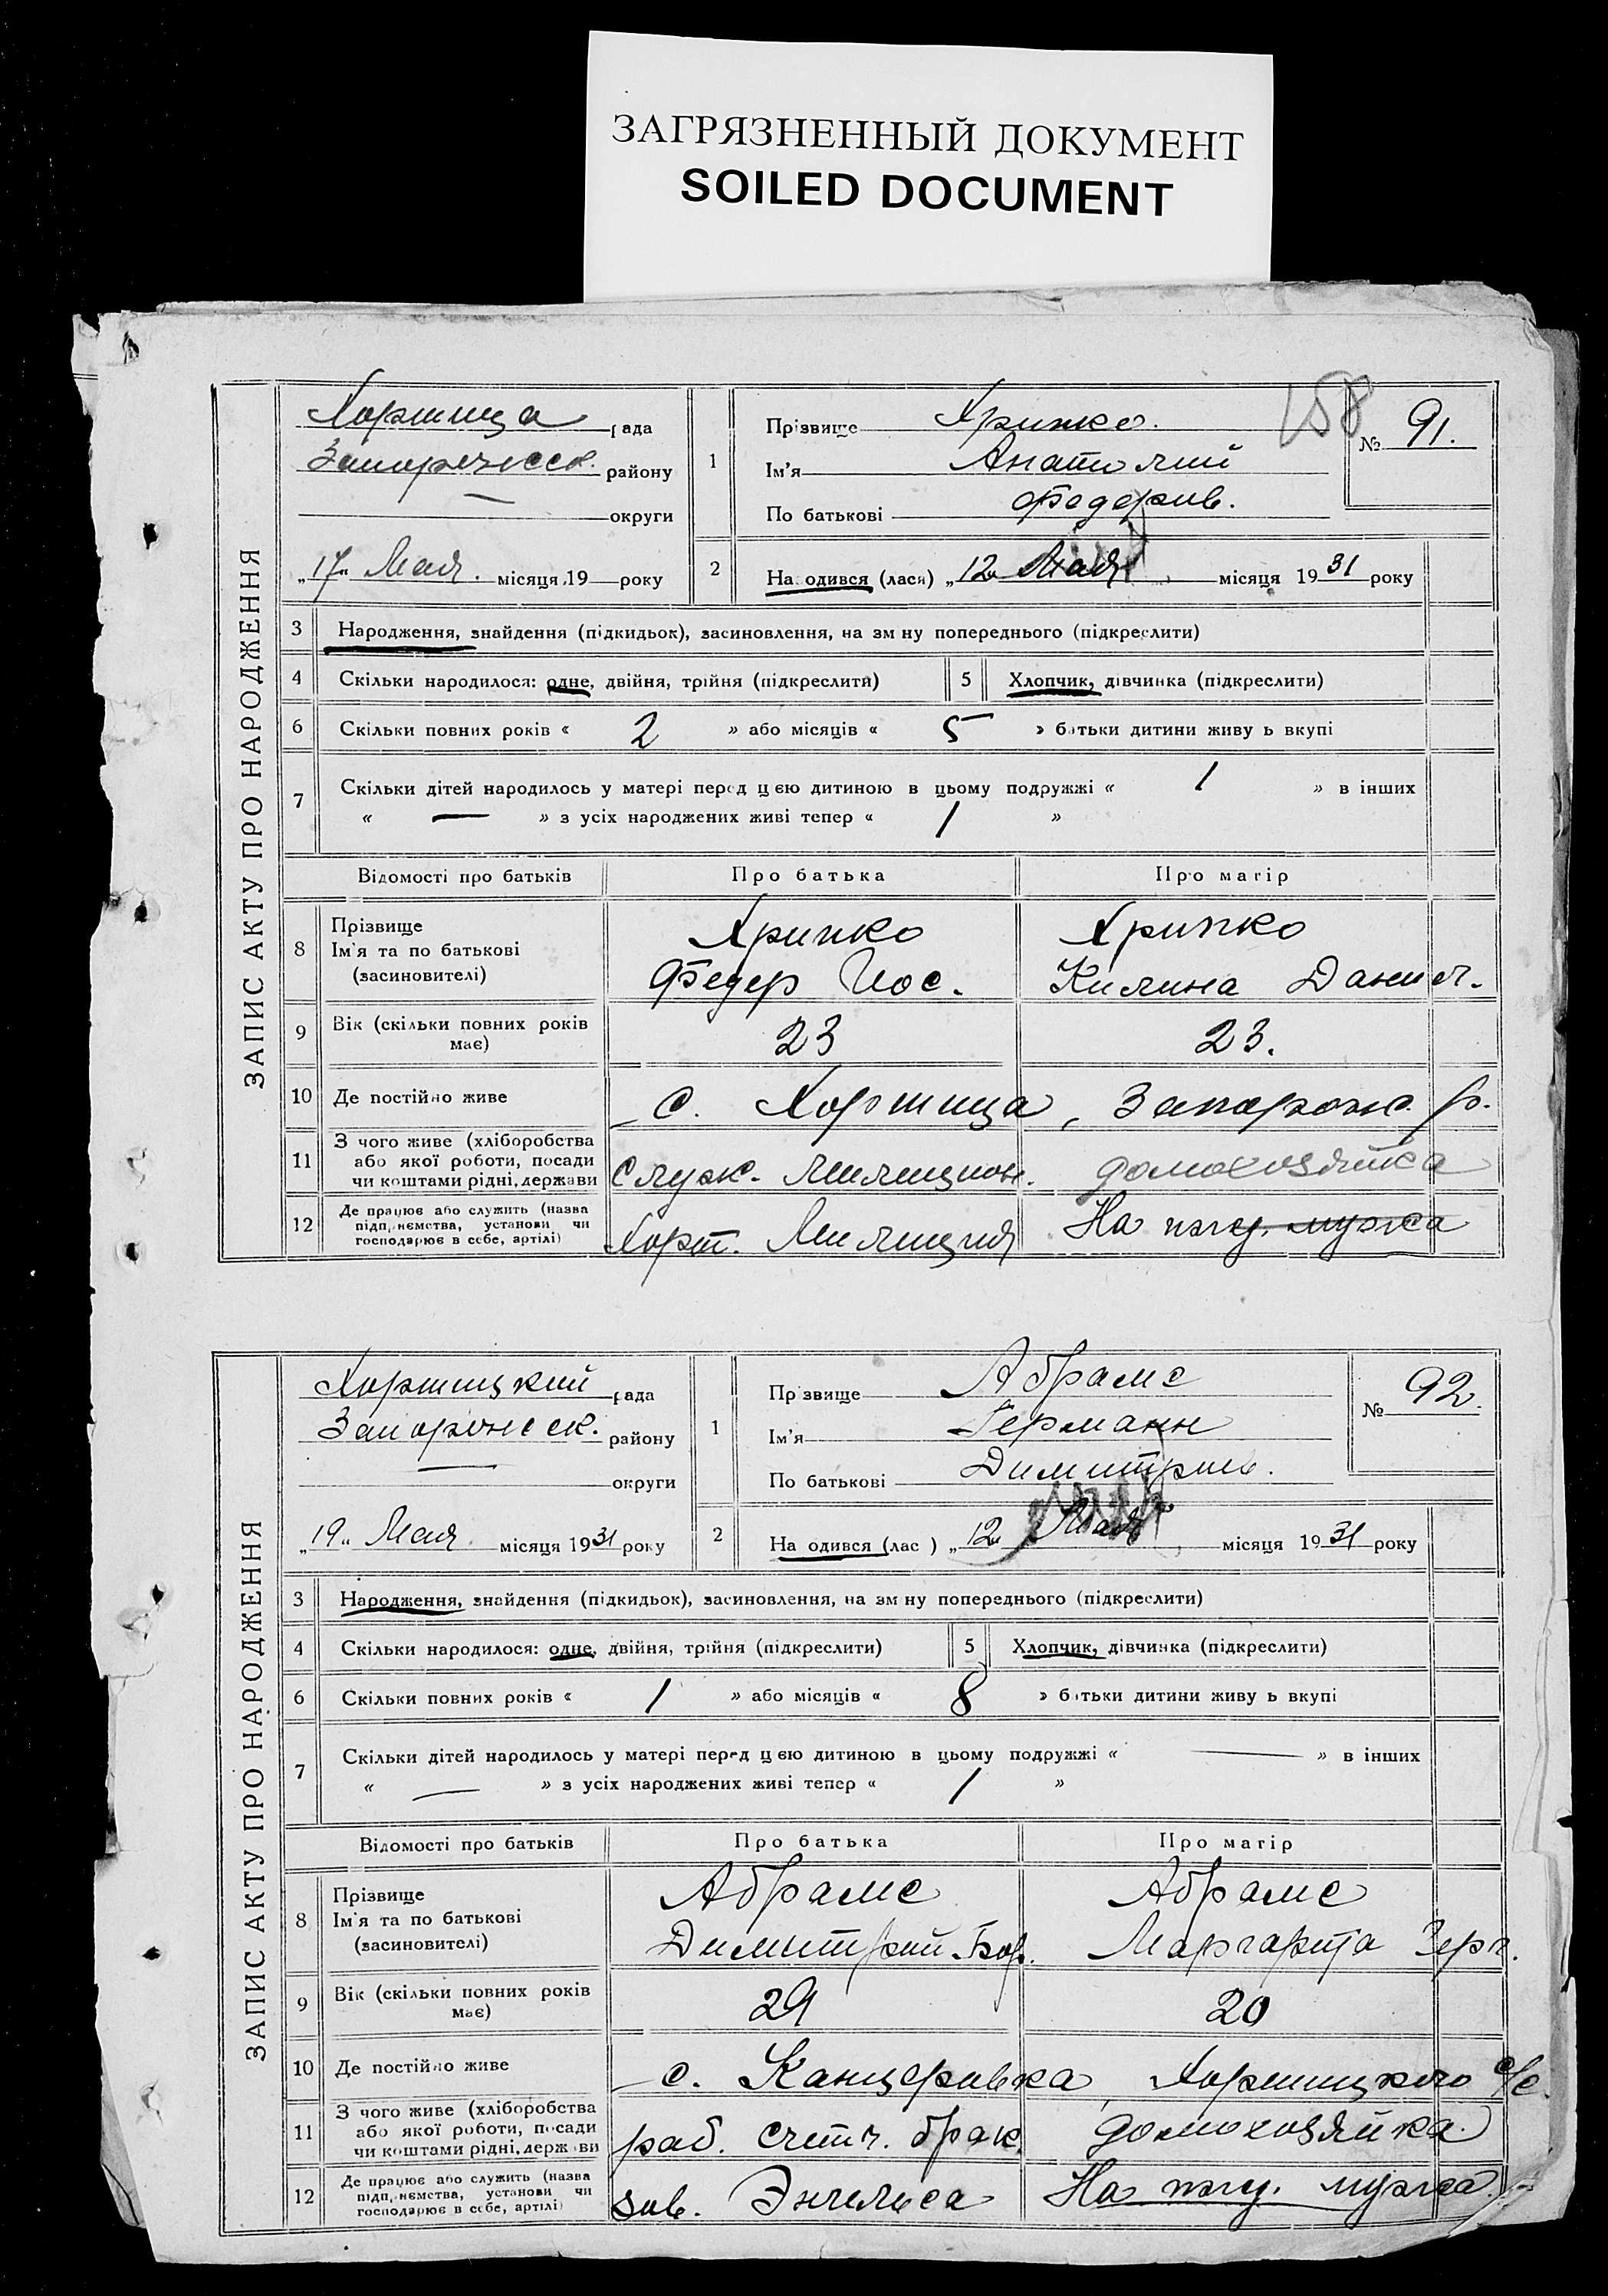 ЗАГРЯЗНЕННЫЙ ДОКУМЕНТ
SOILED DOCUMENT
158
ЗАПИС АКТУ ПРО НАРОДЖЕННЯ
Хортица рада
Запорожск. району
— округи
„17„ Мая. місяця 19 року
1
Прізвище Хрипко.
Ім'я Анатолий
По батькові Федоров.
№ 91.
2
На одився (лася) „12„ Мая місяця 1931 року
3 Народження, знайдення (підкидьок), засиновлення, на зм ну попереднього (підкреслити)
4 Скільки народилося: одне, двійня, трійня (підкреслити) 5 Хлопчик, дівчинка (підкреслити)
6 Скільки повних років « 2 » або місяців « 5 » батьки дитини живу ь вкупі
7 Скільки дітей народилось у матері перед цією дитиною в цьому подружжі « 1 » в інших
« — » з усіх народжених живі тепер « 1 »
Відомості про батьків Про батька Про матір
8 Прізвище
Ім'я та по батькові
(засиновителі)
Хрипко
Федор Иос.
Хрипко
Килина Данил.
9 Вік (скільки повних років
має)
23 23.
10 Де постійно живе с. Хортица, Запорож. р.
11 З чого живе (хліборобства
або якої роботи, посади
чи коштами рідні, держави
Служ. милицион. домохозяйка
12 Де працює або служить (назва
підприємства, установи чи
господарює в себе, артілі)
Хорт. Милиция На ижд. мужа
ЗАПИС АКТУ ПРО НАРОДЖЕННЯ
Хортицкий рада
Запорожск. району
— округи
„19„ Мая. місяця 1931 року
1
Пр звище Абрамс
Ім'я Германн
По батькові Димитрив.
№ 92.
2
На одився (лас ) „12„ Мая місяця 1931 року
3 Народження, знайдення (підкидьок), засиновлення, на зм ну попереднього (підкреслити)
4 Скільки народилося: одне, двійня, трійня (підкреслити) 5 Хлопчик, дівчинка (підкреслити)
6 Скільки повних років « 1 » або місяців « 8 » батьки дитини живу ь вкупі
7 Скільки дітей народилось у матері перед цією дитиною в цьому подружжі « — » в інших
« — » з усіх народжених живі тепер « 1 »
Відомості про батьків Про батька Про матір
8 Прізвище
Ім'я та по батькові
(засиновителі)
Абрамс
Димитрий Бор.
Абрамс
Маргарита Герг.
9 Вік (скільки повних років
має)
29 20
10 Де постійно живе с. Канцеровка Хортицкого с/с.
11 З чого живе (хліборобства
або якої роботи, посади
чи коштами рідні, держ ви
раб. счетч. брак. домохозяйка.
12 Де працює або служить (назва
підприємства, установи чи
господарює в себе, артілі)
зав. Энгельса На ижд. мужа.